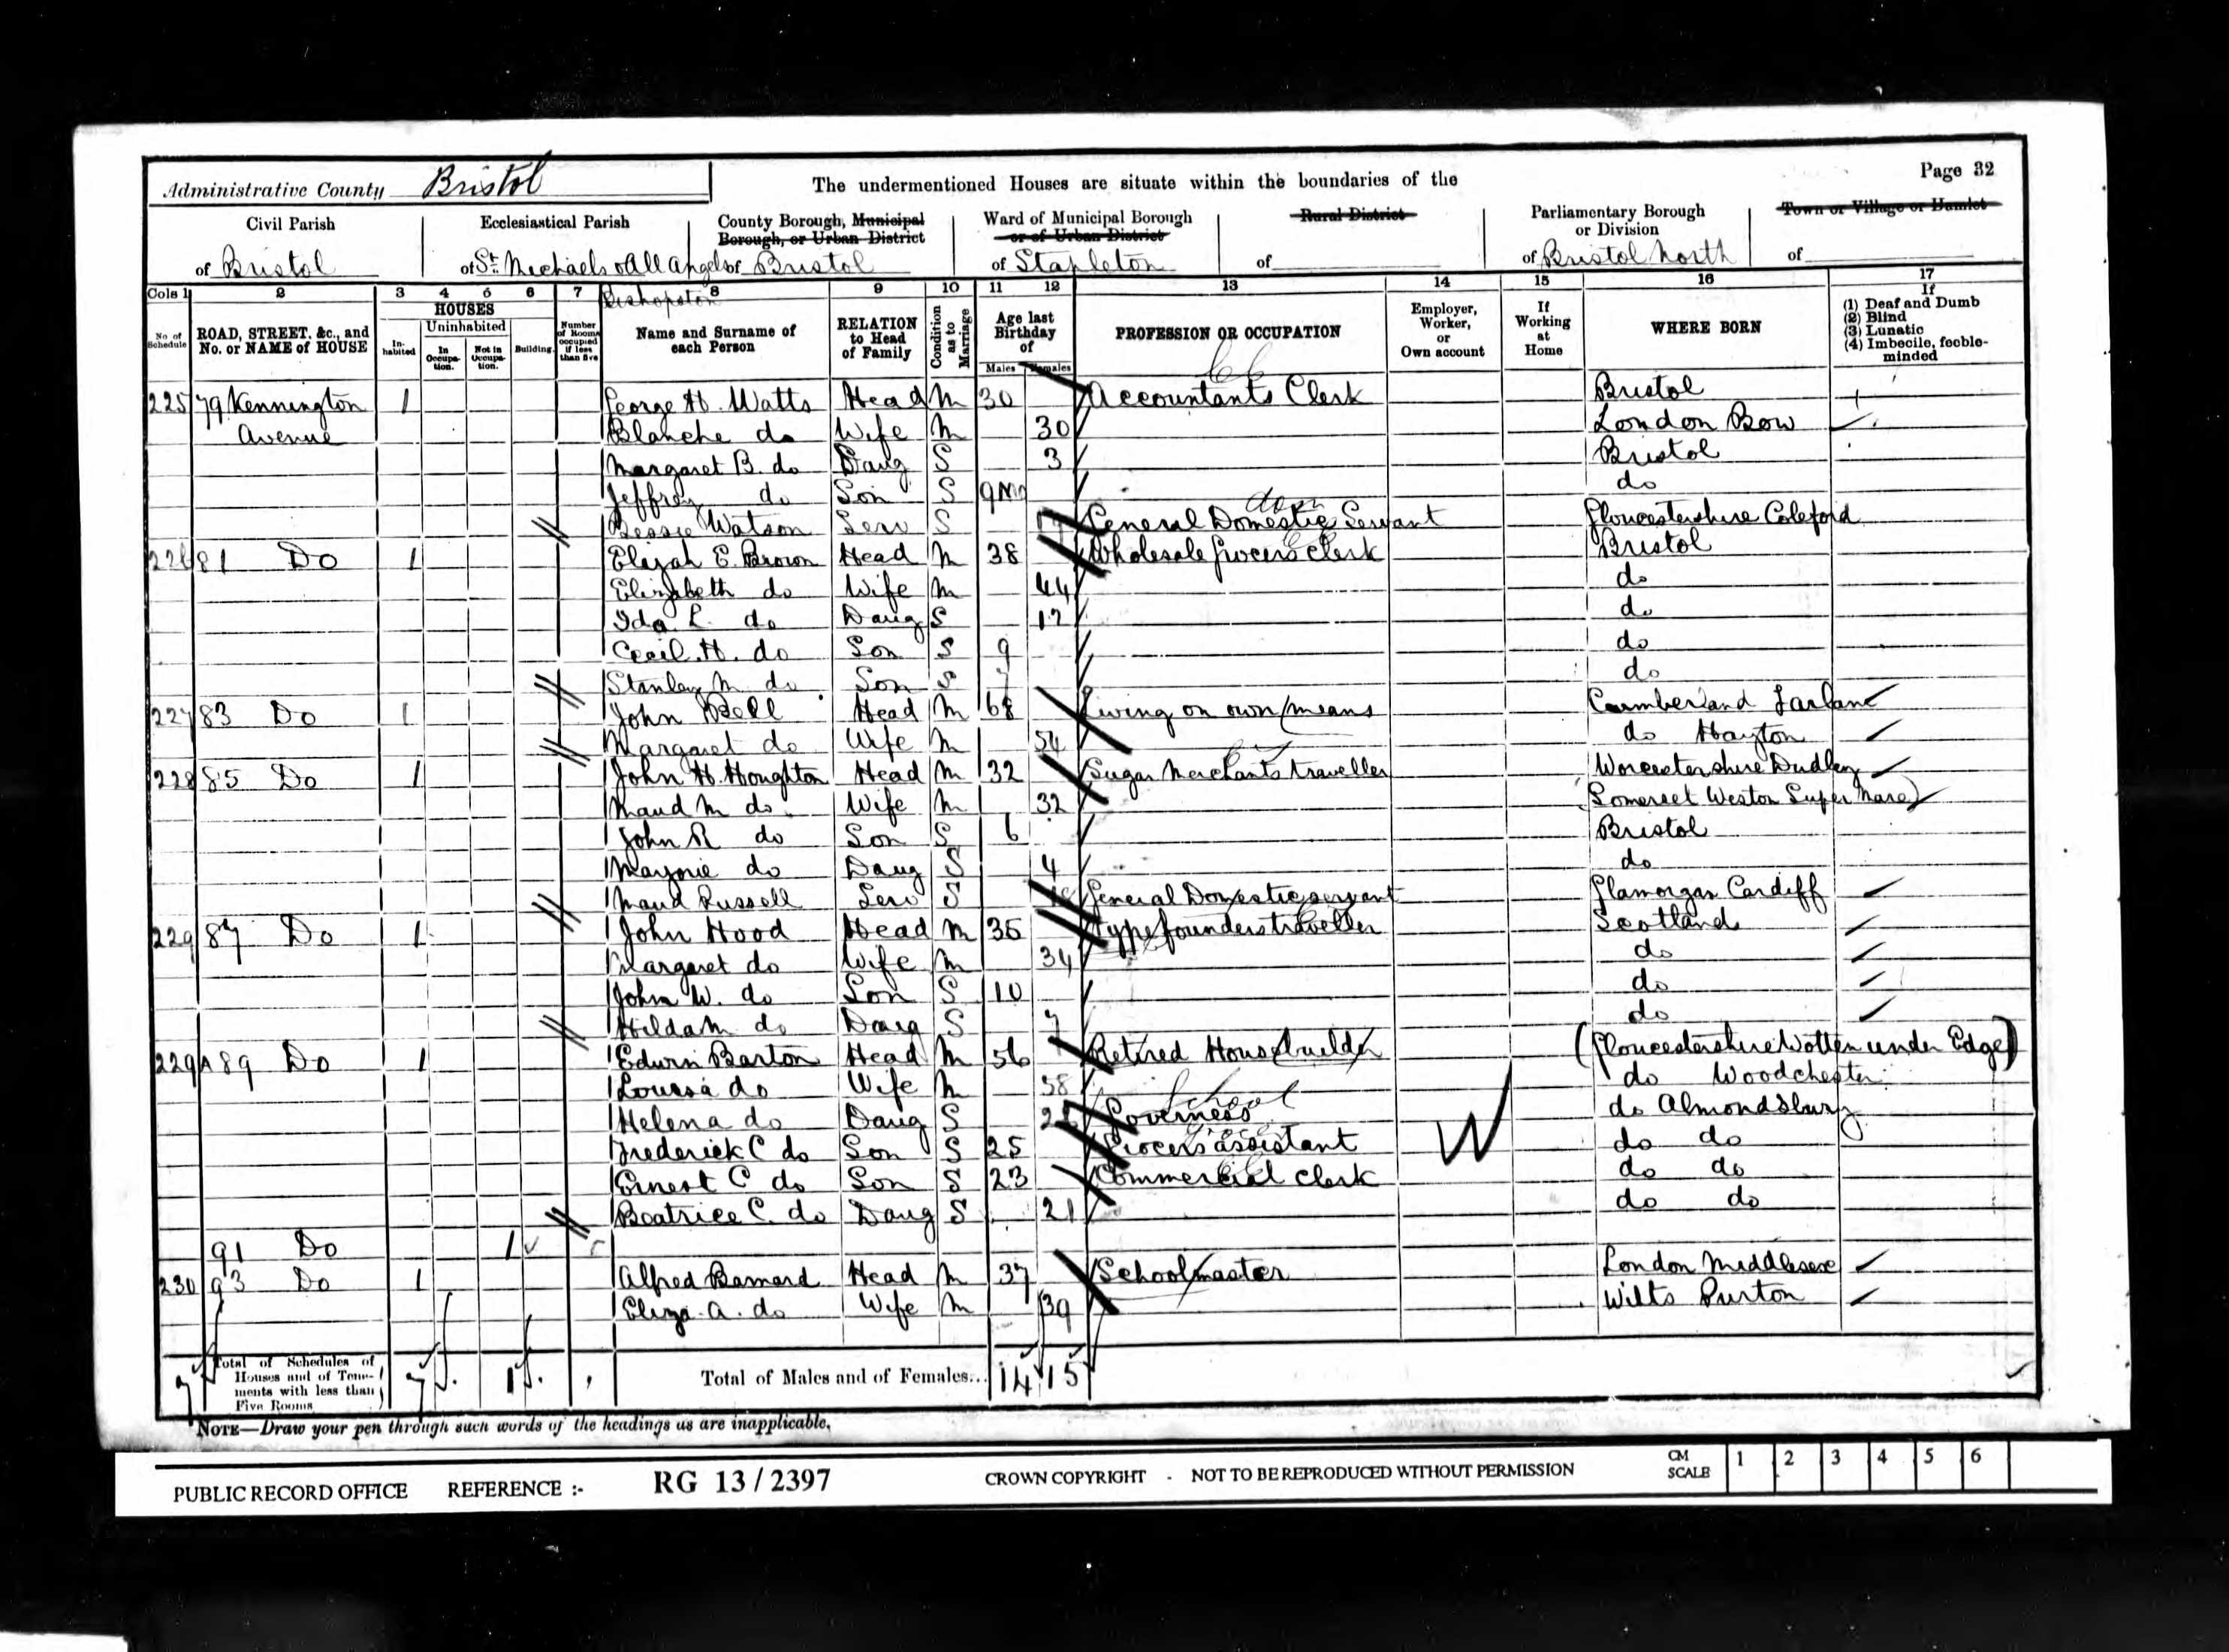 Administrative County Bristol
The undermentioned Houses are situate within the boundaries of the
Page 32
Civil Parish
of Bristol
Ecclesiastical Parish
of St. Michaels & All Angels
Bishopston
County Borough, Municipal Borough, or Urban District
of Bristol
Ward of Municipal Borough or of Urban District
of Stapleton
Rural District
of
Parliamentary Borough or Division
of Bristol North
Town or Village or Hamlet
of
Cols 1 2 3 4 5 6 7 8 9 10 11 12 13 14 15 16 17
No of Schedule
ROAD, STREET, &c., and No. or NAME of HOUSE
HOUSES
In-habited
Uninhabited
In Occupa-tion.
Not in Occupa-tion.
Building.
Number of Rooms occupied if less than five
Name and Surname of each Person
RELATION to Head of Family
Condition as to Marriage
Age last Birthday of
Males Females
PROFESSION OR OCCUPATION
Employer, Worker, or Own account
If Working at Home
WHERE BORN
If
(1) Deaf and Dumb
(2) Blind
(3) Lunatic
(4) Imbecile, feeble-minded
225 79 Kennington 1 George H. Watts Head M 30 Accountants Clerk Bristol
Avenue Blanche do Wife M 30 London Bow
Margaret B. do Daug S 3 Bristol
Jeffrey do Son S 9 Mo do
dom
Bessie Watson Serv S General Domestic Servant Gloucestershire Coleford
226 81 Do 1 Elijah E. Brown Head M 38 Wholesale Grocers Clerk Bristol
Elizabeth do Wife M 44 do
Ida L. do Daug S 12 do
Cecil H. do Son S 9 do
Stanley M. do Son S do
227 83 Do 1 John Bell Head M 68 Living on own means Cumberland
Margaret do Wife M 54 do Hayton
228 85 Do 1 John H. Houghton Head M 32 Sugar Merchants traveller Worcestershire Dudley
Maud M do Wife M 32 Somerset Weston Super Mare
John R do Son S 6 Bristol
Marjorie do Daug S 4 do
Maud Russell Serv S General Domestic servant Glamorgan Cardiff
229 87 Do 1 John Hood Head M 35 Typefounders traveller Scotland
Margaret do Wife M 34 do
John W. do Son S 10 do
Hilda M do Daug S 7 do
229A 89 Do 1 Edwin Barton Head M 56 Retired Housebuilder (Gloucestershire Wotten under Edge)
Louisa do Wife M 58 do Woodchester
School
Helena do Daug S Governess do Almondsbury
Frederick C do Son S 25 Grocers assistant W do do
Ernest C do Son S 23 Commercial clerk do do
Beatrice C. do Daug S 21 do do
91 Do 1
230 93 Do 1 Alfred Barnard Head M 37 Schoolmaster London Middlesex
Eliza A. do Wife M 39 Wilts Purton
7 Total of Schedules of Houses and of Tene-ments with less than Five Rooms 7 1 Total of Males and of Females... 14 15
NOTE—Draw your pen through such words of the headings as are inapplicable.
PUBLIC RECORD OFFICE REFERENCE :- RG 13/2397 CROWN COPYRIGHT - NOT TO BE REPRODUCED WITHOUT PERMISSION CM SCALE 1 2 3 4 5 6